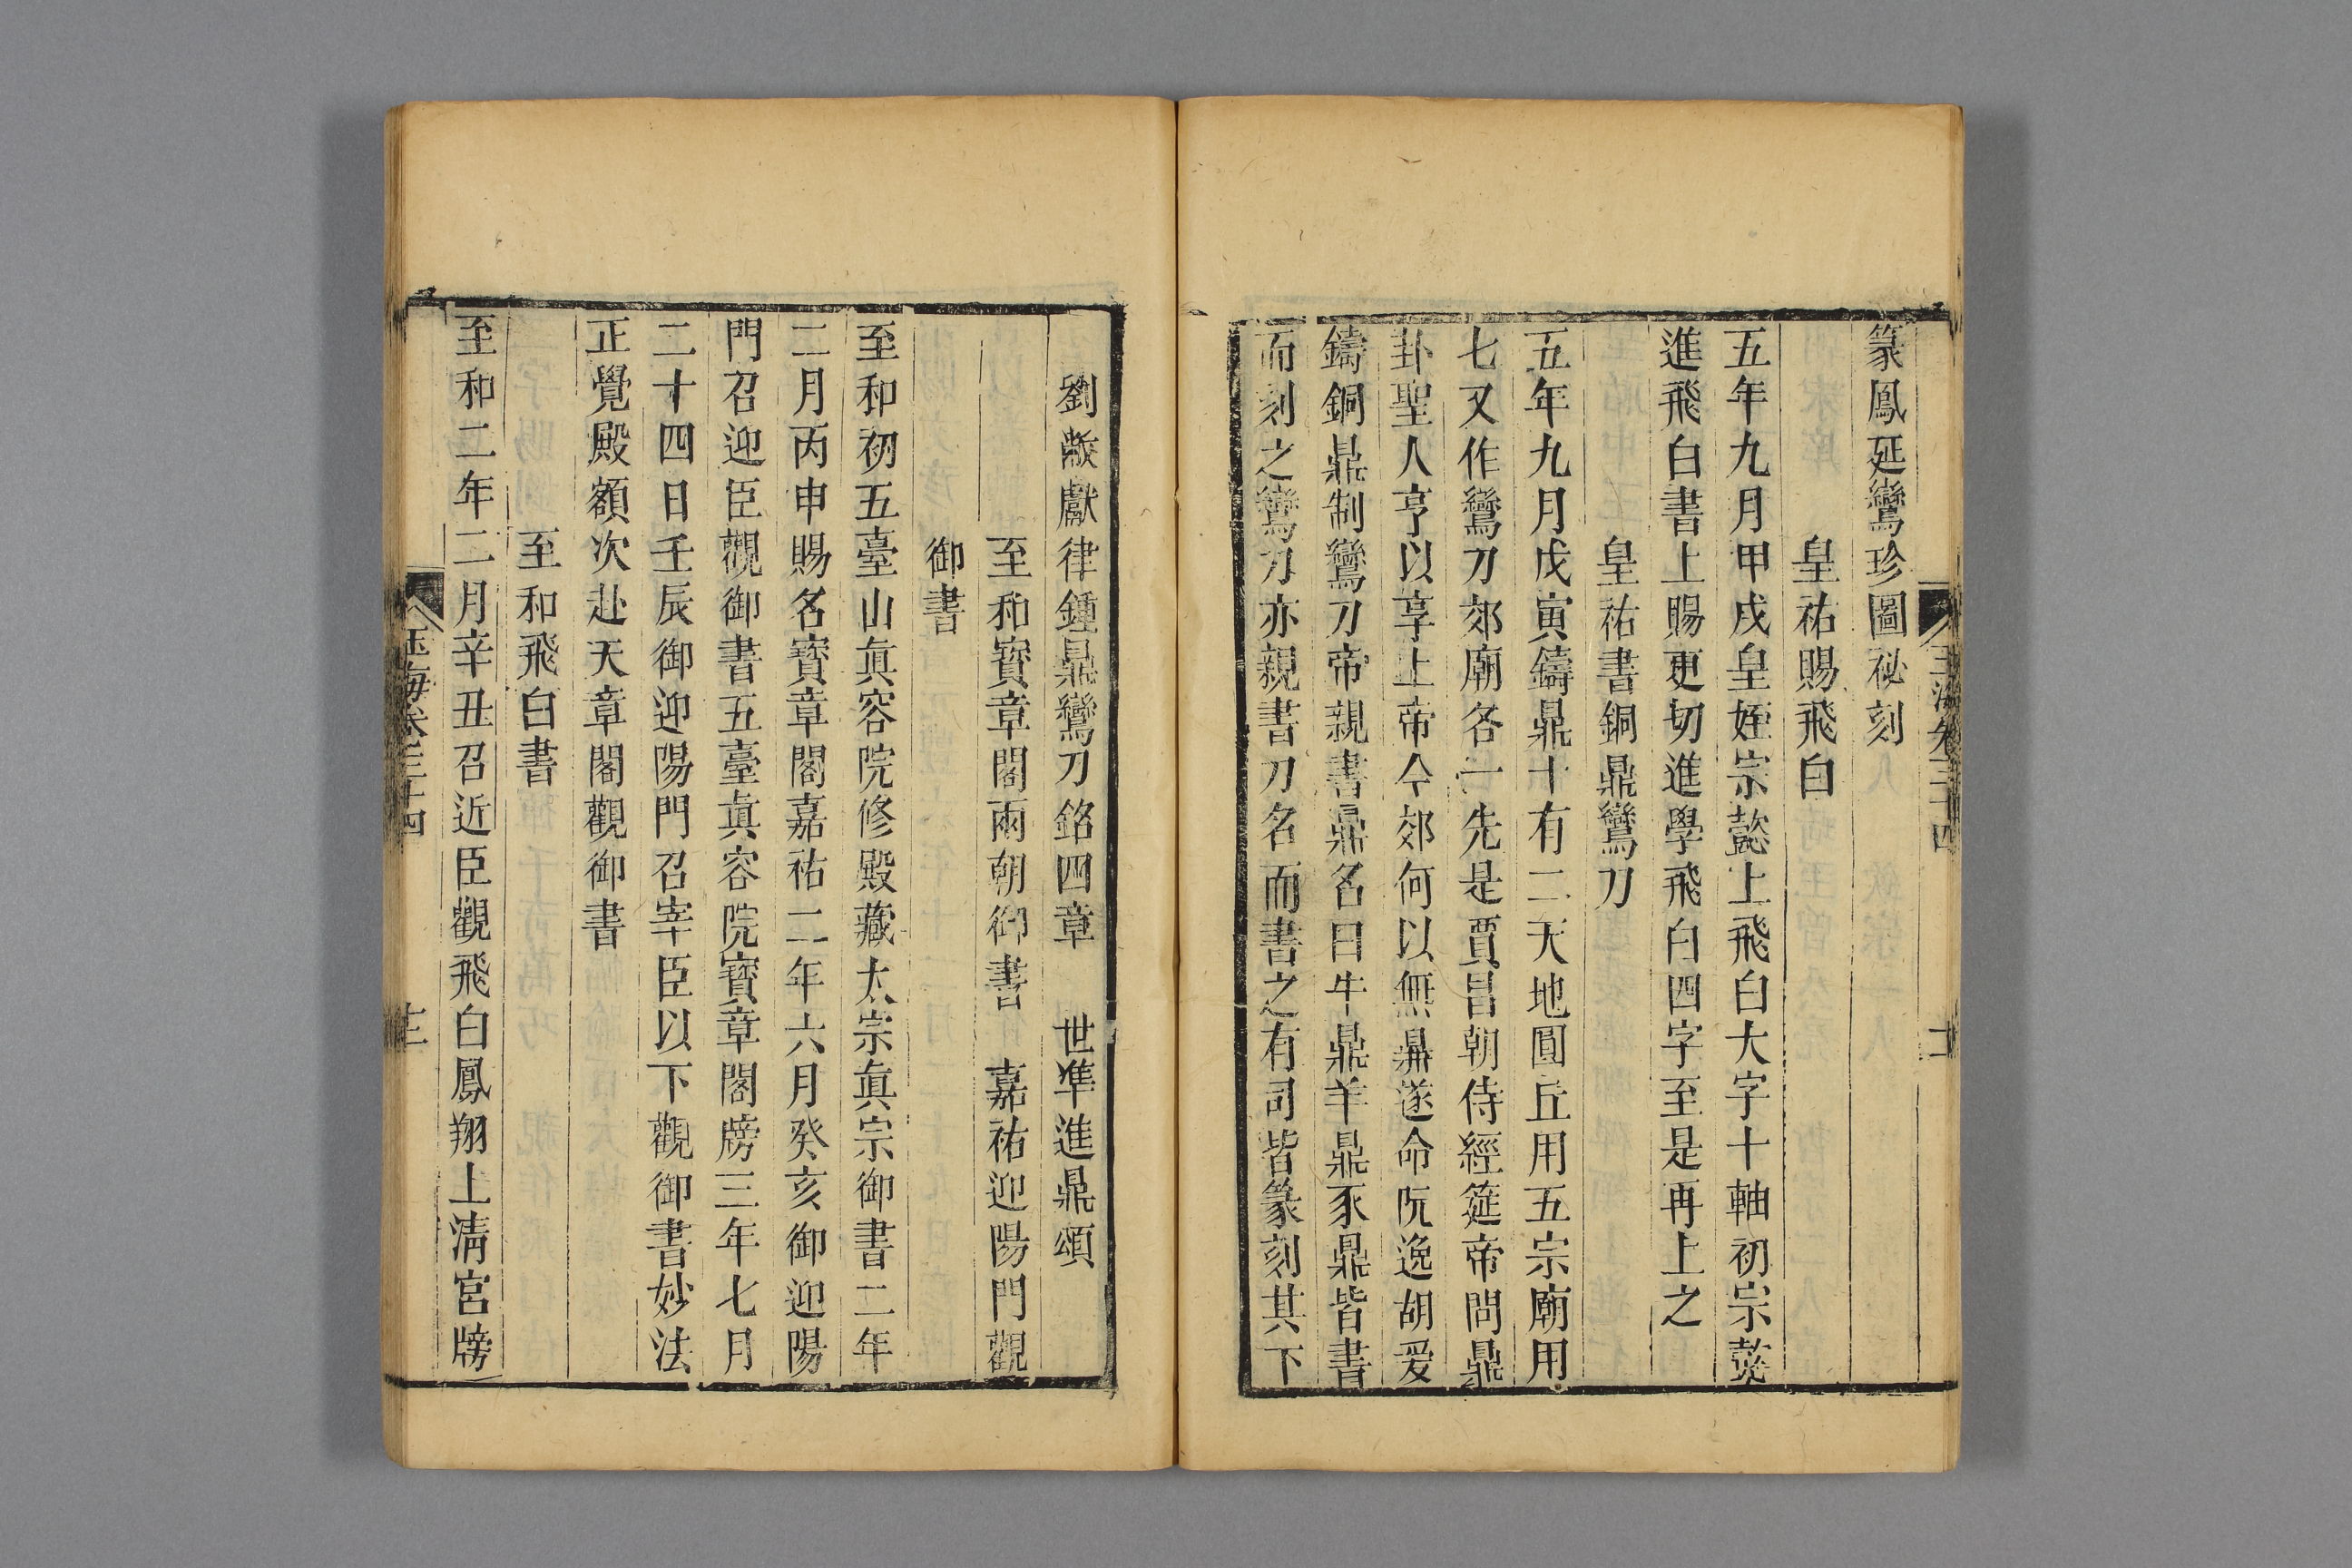 玉海卷三十四
篆鳳延鸞珍圖祕刻
皇祐賜飛白
五年九月甲戌皇姪宗懿上飛白大字十軸初宗懿
進飛白書上賜更切進學飛白四字至是再上之
皇祐書銅鼎鸞刀
五年九月戊寅鑄鼎十有二天地圓丘用五宗廟用
七又作鸞刀郊廟各一先是賈昌朝侍經筵帝問鼎
卦聖人亨以享上帝今郊何以無鼎遂命阮逸胡爰
鑄銅鼎制鸞刀帝親書鼎名曰牛鼎羊鼎豕鼎皆書
而刻之鸞刀亦親書刀名而書之有司皆篆刻其下
劉敞獻律鍾鼎鸞刀銘四章 世準進鼎頌
至和寶章閣兩朝御書 嘉祐迎陽門觀
御書
至和初五臺山眞容院修殿藏太宗眞宗御書二年
二月丙申賜名寶章閣嘉祐二年六月癸亥御迎陽
門召迎臣觀御書五臺眞容院寶章閣牓三年七月
二十四日壬辰御迎陽門召宰臣以下觀御書妙法
正覺殿額次赴天章閣觀御書
至和飛白書
至和二年二月辛丑召近臣觀飛白鳳翔上清宮牓
玉海卷三十四